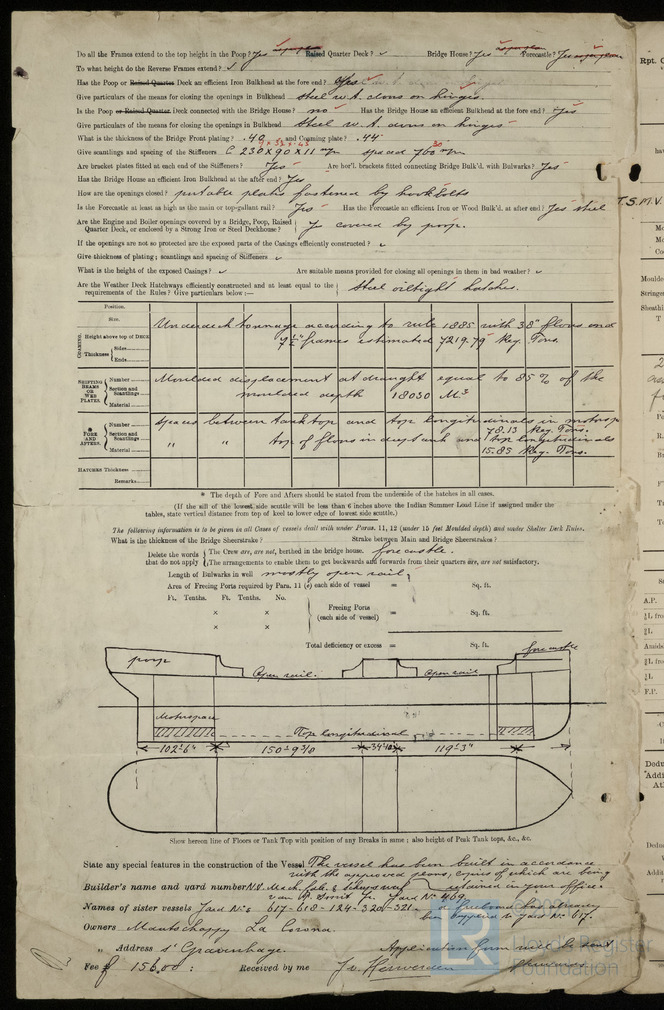 Do all the Frames extend to the top height in the Poop? Yes Raised Quarter Deck? ✓ Bridge House? Yes Forecastle? Yes
To what height do the Reverse Frames extend? ✓
Has the Poop or Raised Quarter Deck an efficient Iron Bulkhead at the fore end? Yes
Give particulars of the means for closing the openings in Bulkhead steel w.t. doors on hinges.
Is the Poop or Raised Quarter Deck connected with the Bridge House? no Has the Bridge House an efficient Bulkhead at the fore end? Yes
Give particulars of the means for closing the openings in Bulkhead Steel w.t. doors on hinges
What is the thickness of the Bridge Front plating? .40 and Coaming plate? .44
Give scantlings and spacing of the Stiffeners C 230x90x11 m/m spaced 760 m/m
Are bracket plates fitted at each end of the Stiffeners? Yes Are hor'l. brackets fitted connecting Bridge Bulk'd. with Bulwarks? Yes
Has the Bridge House an efficient Iron Bulkhead at the after end? Yes
How are the openings closed? portable plates fastened by hookbolts
Is the Forecastle at least as high as the main or top-gallant rail? Yes Has the Forecastle an efficient Iron or Wood Bulk'd. at after end? Yes steel
Are the Engine and Boiler openings covered by a Bridge, Poop, Raised
Quarter Deck, or enclosed by a Strong Iron or Steel Deckhouse? Is covered by poop.
If the openings are not so protected are the exposed parts of the Casings efficiently constructed? ✓
Give thickness of plating; scantlings and spacing of Stiffeners ✓
What is the height of the exposed Casings? ✓ Are suitable means provided for closing all openings in them in bad weather? ✓
Are the Weather Deck Hatchways efficiently constructed and at least equal to the
requirements of the Rules? Give particulars below:— Steel oiltight hatches.
Position.
Size.
COAMING. Height above top of DECK
Thickness Sides
Ends
Underdeck tonnage according to rule 1885 with 38" floors and
7½" frames estimated 7219.79 Reg. Tons
SHIFTING BEAMS OR WEB PLATES. Number
Section and Scantlings
Material
Moulded displacement at draught equal to 85% of the
moulded depth 18030 M³
* FORE AND AFTERS. Number
Section and Scantlings
Material
Spaces between tanktop and top longitudinals in motorsp.
78.13 Reg. Tons.
" " top of floors in deeptank and top longitudinals
15.85 Reg. Tons.
HATCHES Thickness
Remarks
* The depth of Fore and Afters should be stated from the underside of the hatches in all cases.
(If the sill of the lowest side scuttle will be less than 6 inches above the Indian Summer Load Line if assigned under the
tables, state vertical distance from top of keel to lower edge of lowest side scuttle.)
The following information is to be given in all Cases of vessels dealt with under Paras. 11, 12 (under 15 feet Moulded depth) and under Shelter Deck Rules.
What is the thickness of the Bridge Sheerstrake? Strake between Main and Bridge Sheerstrakes?
Delete the words that do not apply
The Crew are, are not, berthed in the bridge house. forecastle.
The arrangements to enable them to get backwards and forwards from their quarters are, are not satisfactory.
Length of Bulwarks in well mostly open rail.
Area of Freeing Ports required by Para. 11 (e) each side of vessel = Sq. ft.
Ft. Tenths. Ft. Tenths. No.
×  ×
×  ×
Freeing Ports
(each side of vessel) = Sq. ft.
Total deficiency or excess = Sq. ft.
poop
Open rail.
Open rail
forecastle
Motorspace
Top longitudinal
102'6"
119'3"
Show hereon line of Floors or Tank Top with position of any Breaks in same; also height of Peak Tank tops, &c., &c.
State any special features in the construction of the Vessel The vessel has been built in accordance
with the approved plans, copies of which are being
retained in your office.
Builder's name and yard number N.V. Mach. fab. & scheepswerf
van P. Smit Jr. Yard No. 469
Names of sister vessels Yard No's 617-618-124-320-321. a freeboard has already
been applied to Yard No. 617.
Owners Maatschappy La Corona.
" Address s' Gravenhage. Application form will be sent
Fee f 156.00 : Received by me
Lloyd's Register
Foundation
LR
Rpt.
T.S.M.V.
A.P.
F.P.